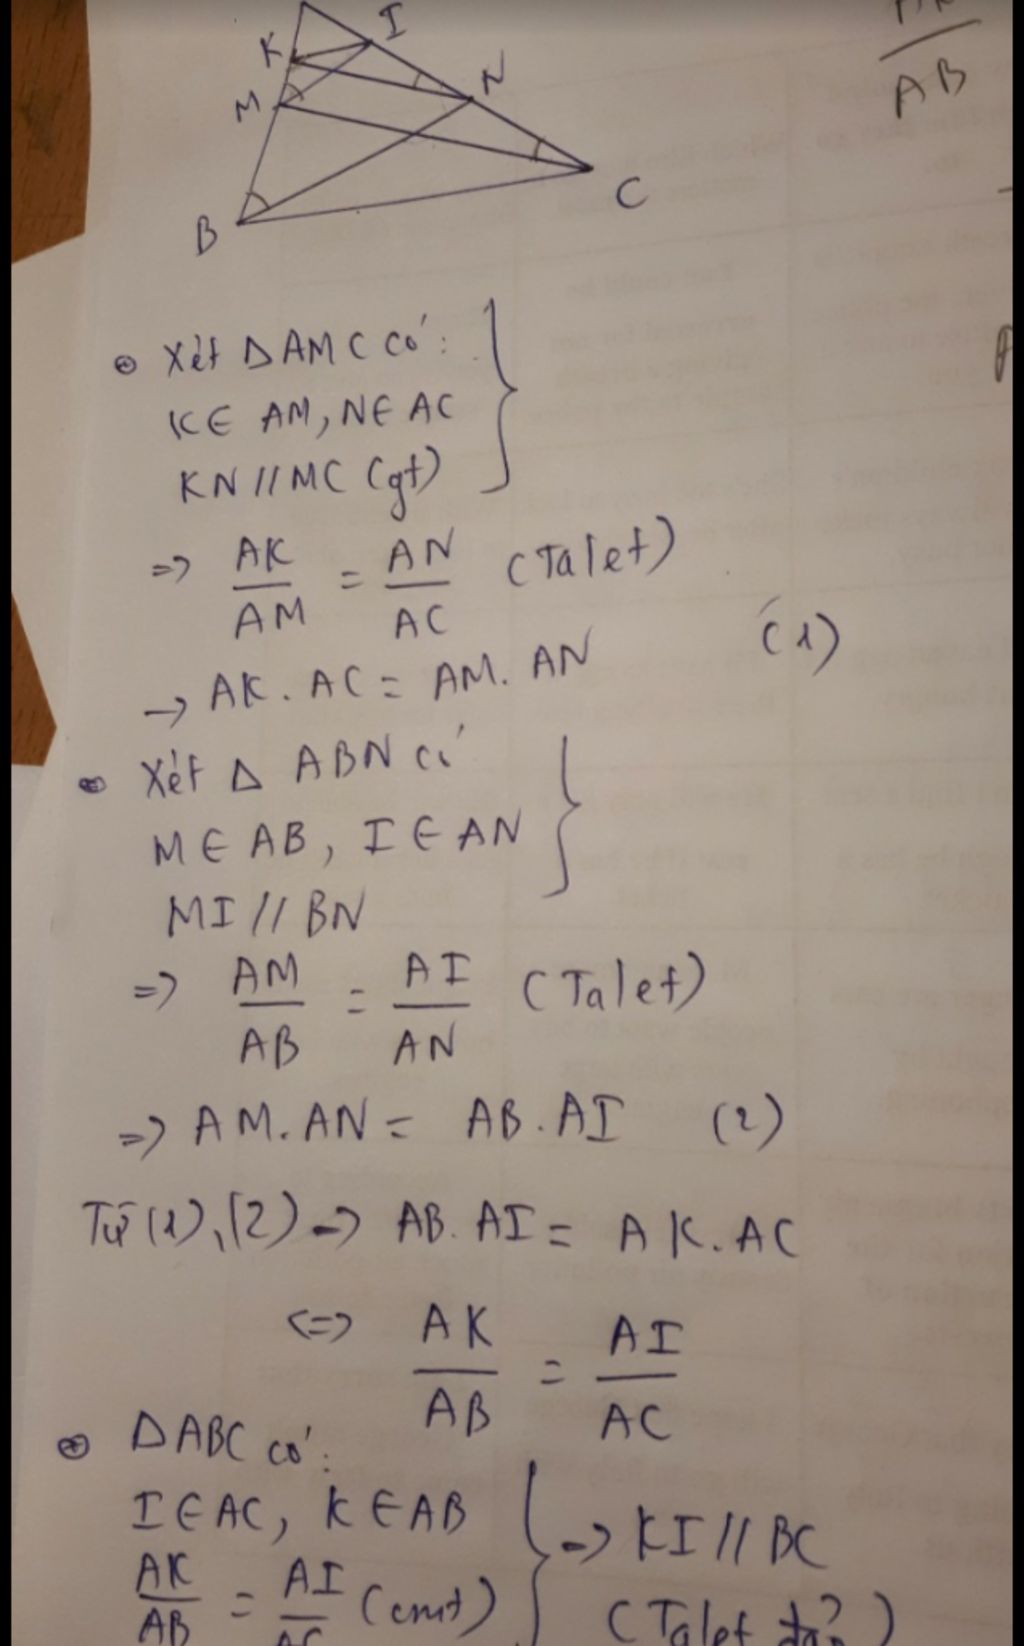 K
I
N
M
B
C
AB
Xét ΔAMC có:
K∈ AM, N∈ AC
KN // MC (gt)
=> AK/AM = AN/AC (Talet)
-> AK. AC = AM. AN (1)
Xét Δ ABN có
M ∈ AB, I ∈ AN
MI // BN
=> AM/AB = AI/AN (Talet)
=> AM. AN = AB. AI (2)
Từ (1), (2) -> AB. AI = AK. AC
<=> AK/AB = AI/AC
ΔABC có:
I ∈ AC, K ∈ AB -> KI // BC
AK/AB = AI/AC (cmt) (Talet đảo)